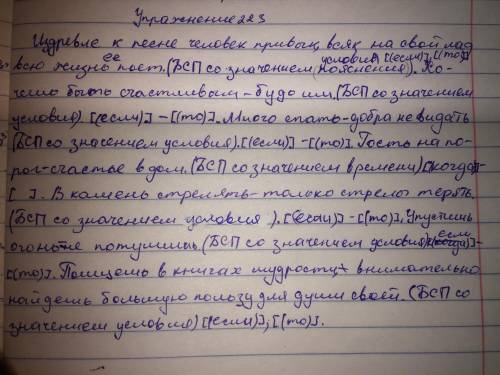 Упражнение 223
Издревле к песне человек привык, всяк на свой лад
всю жизнь ее поёт. (БСП со значением условия, пояснения). [(если)], [(то)] Хо-
чешь быть счастливым – будь им. (БСП со значением
условия) [(если)] – [(то)]. Много спать – добра не видать
(БСП со значением условия). [(если)] – [(то)]. Гость на по-
рог – счастье в дом. (БСП со значением времени) [(когда)] –
[ ]. В камень стрелять – только стрелы терять.
(БСП со значением условия). [(если)] – [(то)]. Упустишь
огонь – не потушишь. (БСП со значением условия) [(если)] –
[(то)]. Поищешь в книгах мудрость внимательно
найдешь большую пользу для души своей. (БСП со
значением условия) [(если)], [(то)].